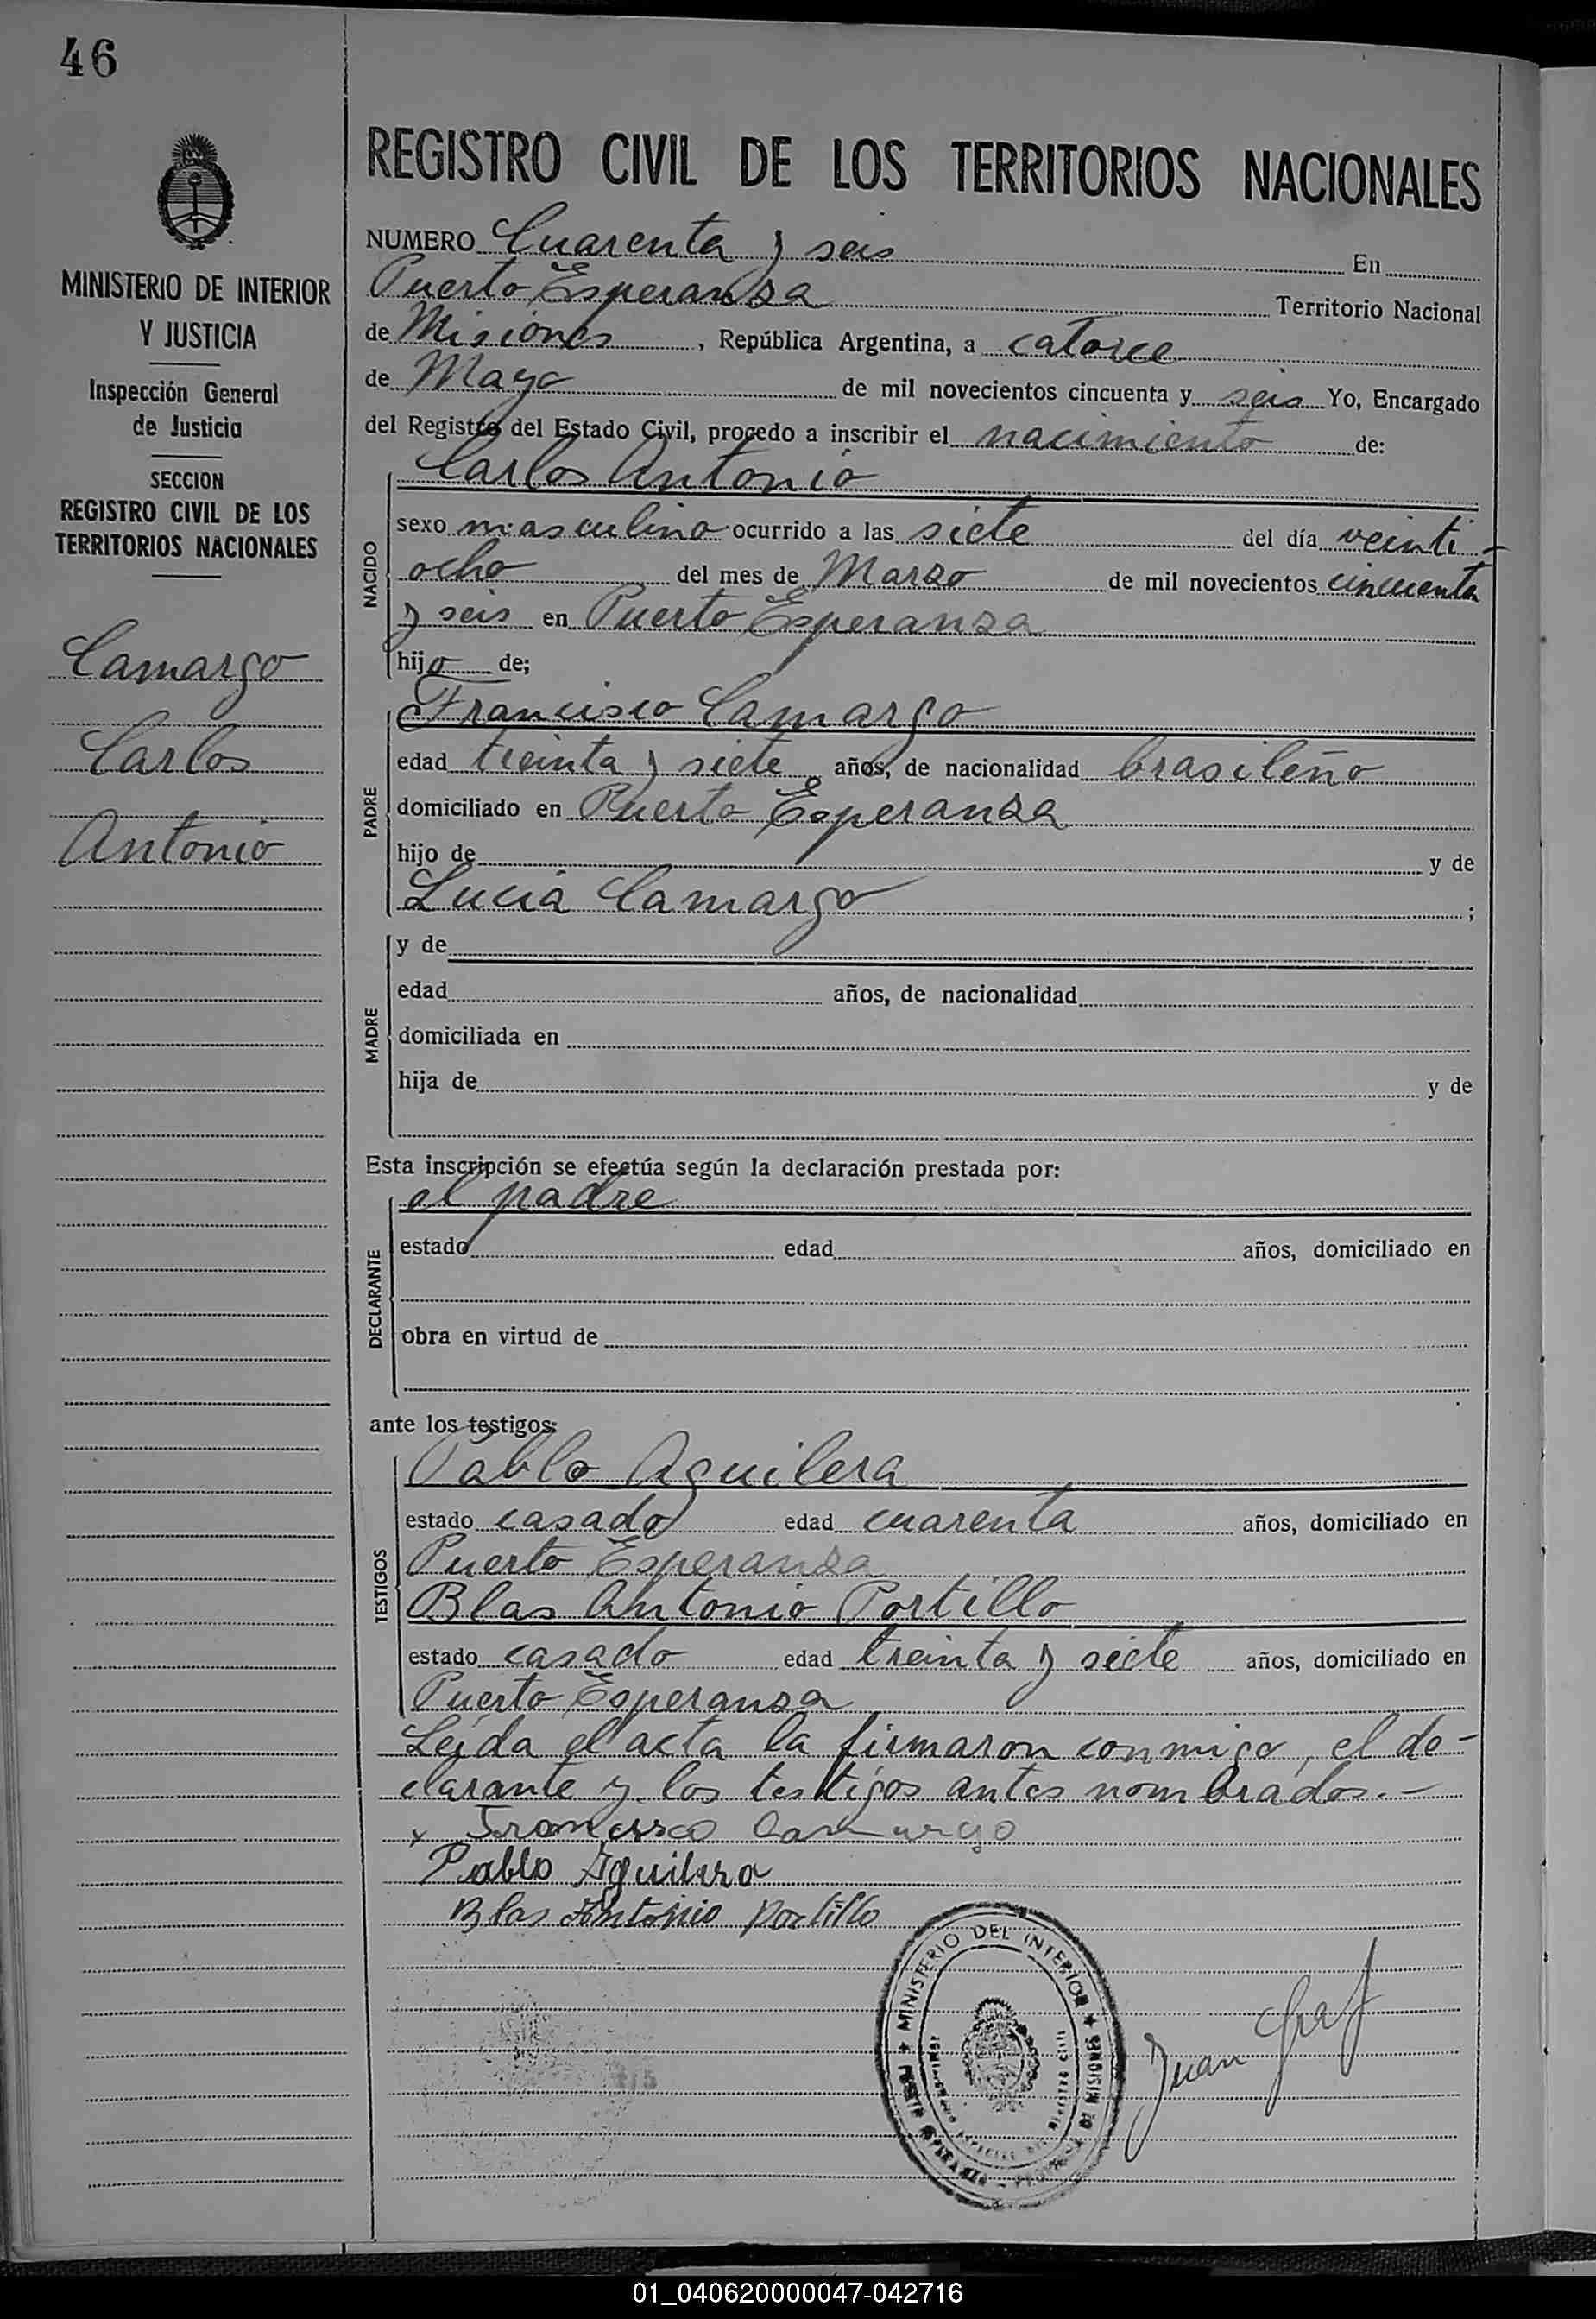 46
MINISTERIO DE INTERIOR
Y JUSTICIA
Inspección General
de Justicia
SECCION
REGISTRO CIVIL DE LOS
TERRITORIOS NACIONALES
Camargo
Carlos
Antonio
REGISTRO CIVIL DE LOS TERRITORIOS NACIONALES
NUMERO Cuarenta y seis En
Puerto Esperanza Territorio Nacional
de Misiones, República Argentina, a catorce
de Mayo de mil novecientos cincuenta y seis Yo, Encargado
del Registro del Estado Civil, procedo a inscribir el nacimiento de:
NACIDO
Carlos Antonio
sexo masculino ocurrido a las siete del día veinti-
ocho del mes de Marzo de mil novecientos cincuenta
y seis en Puerto Esperanza
hijo de;
PADRE
Francisco Camargo
edad treinta y siete años, de nacionalidad brasileño
domiciliado en Puerto Esperanza
hijo de y de
Lucia Camargo ;
MADRE
y de
edad años, de nacionalidad
domiciliada en
hija de y de
Esta inscripción se efectúa según la declaración prestada por:
DECLARANTE
el padre
estado edad años, domiciliado en
obra en virtud de
ante los testigos:
TESTIGOS
Pablo Aguilera
estado casado edad cuarenta años, domiciliado en
Puerto Esperanza
Blas Antonio Portillo
estado casado edad treinta y siete años, domiciliado en
Puerto Esperanza
Leída el acta la firmaron conmigo, el de-
clarante y los testigos antes nombrados.-
x Francisco Camargo
Pablo Aguilera
Blas Antonio Portillo
MINISTERIO DEL INTERIOR
DE MISIONES
Juan Graf
01_040620000047-042716